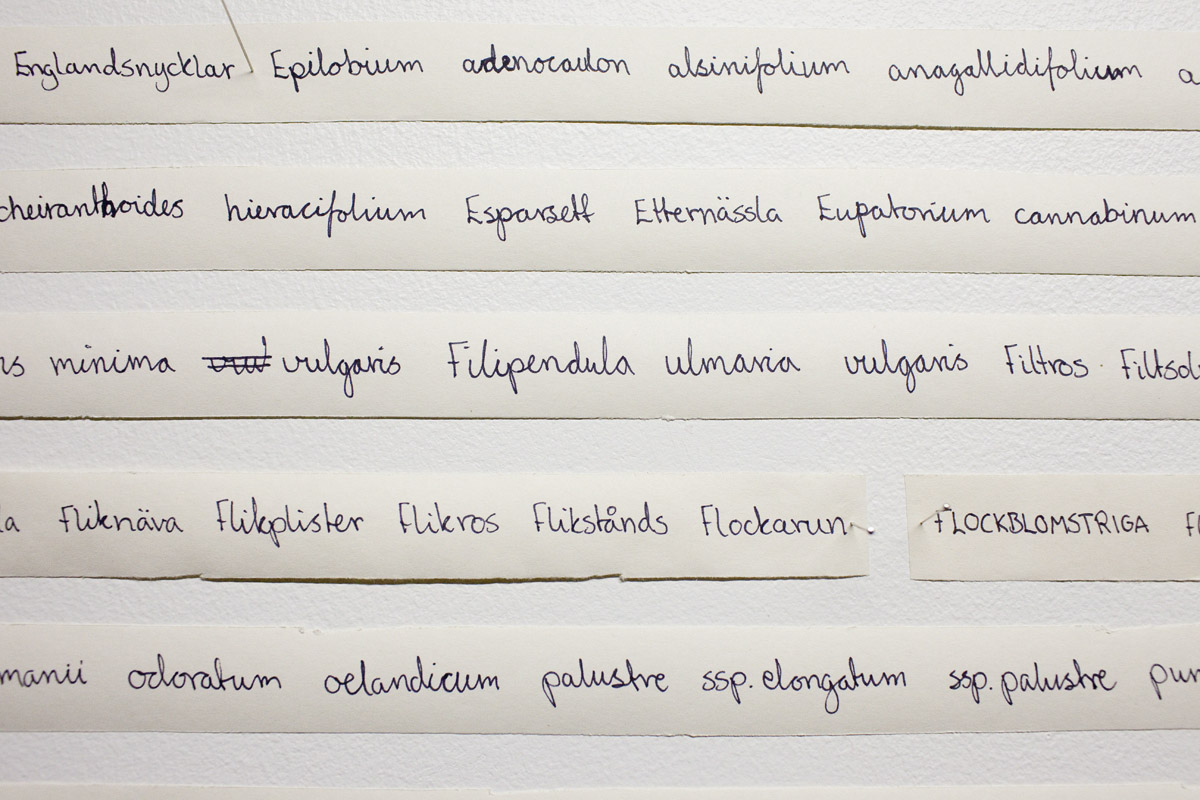 Englandsnycklar Epilobium adenocaulon alsinifolium anagallidifolium a
cheiranthoides hieracifolium Esparsett Etternässla Eupatorium cannabinum
ns minima vulgaris Filipendula ulmaria vulgaris Filtros Filtsol
la Fliknäva Flikplister Flikros Flikstånds Flockarun FLOCKBLOMSTRIGA Fl
manii odoratum oelandicum palustre ssp. elongatum ssp. palustre pur